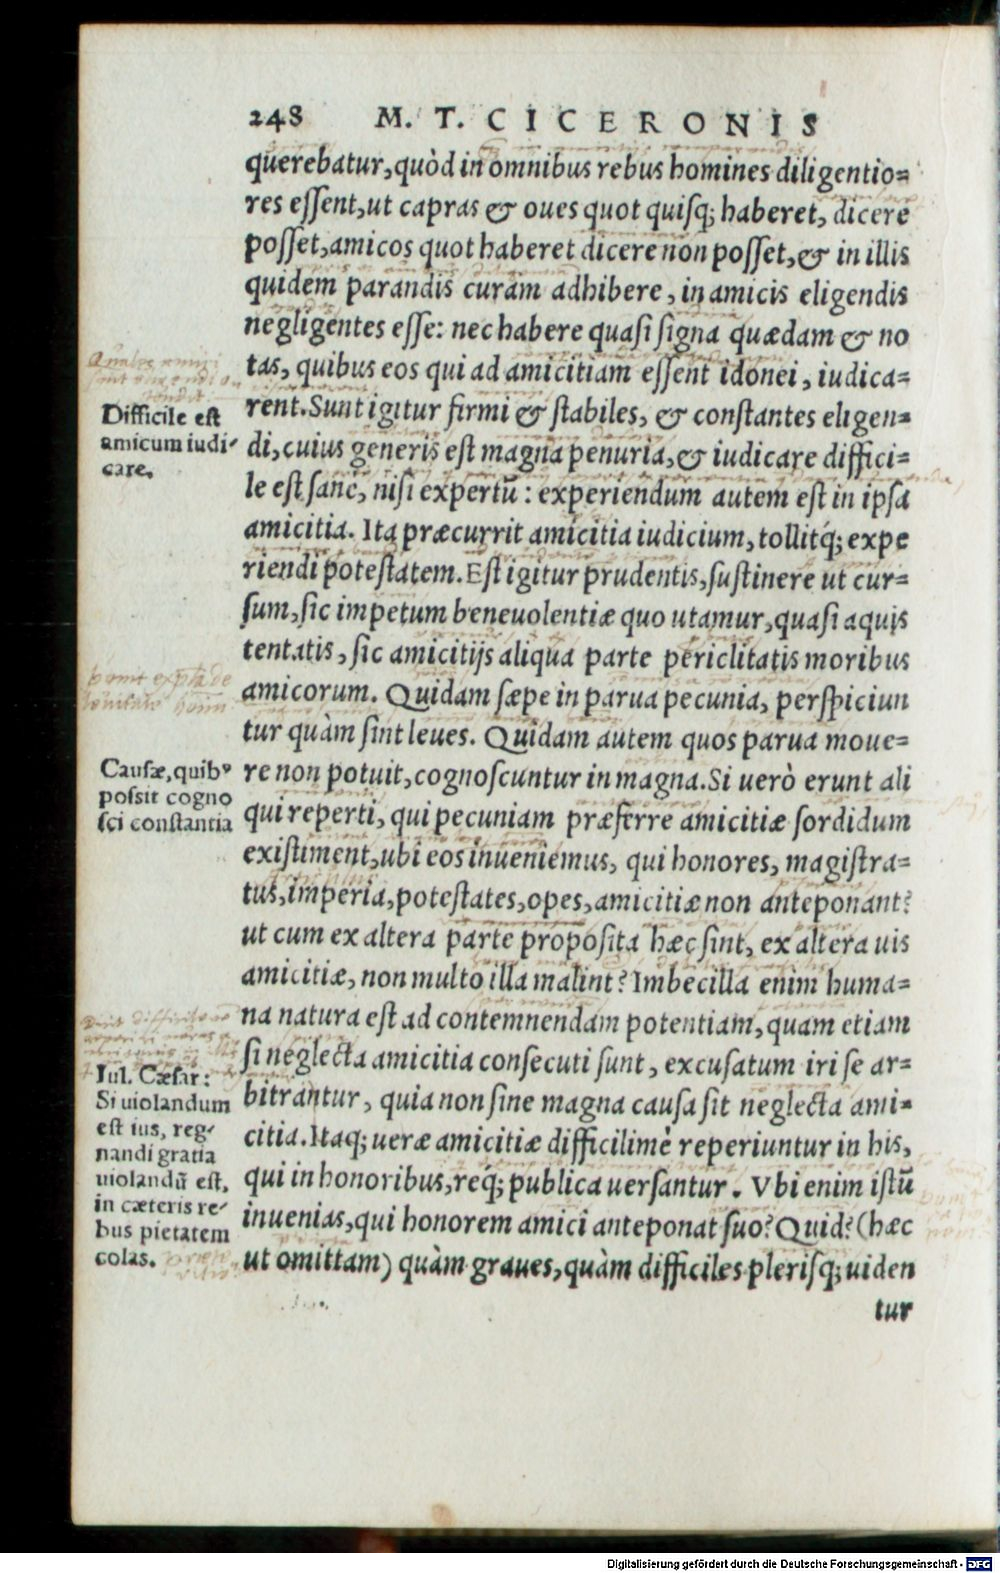 248 M. T. CICERONIS
querebatur, quòd in omnibus rebus homines diligentio=
res essent, ut capras & oues quot quisq; haberet, dicere
posset, amicos quot haberet dicere non posset, & in illis
quidem parandis curam adhibere, in amicis eligendis
negligentes esse: nec habere quasi signa quædam & no
tas, quibus eos qui ad amicitiam essent idonei, iudica=
rent. Sunt igitur firmi & stabiles, & constantes eligen=
di, cuius generis est magna penuria, & iudicare diffici=
le est sanè, nisi expertū: experiendum autem est in ipsa
amicitia. Ita præcurrit amicitia iudicium, tollitq́; expe
riendi potestatem. Est igitur prudentis, sustinere ut cur=
sum, sic impetum beneuolentiæ quo utamur, quasi aquis
tentatis, sic amicitijs aliqua parte periclitatis moribus
amicorum. Quidam sæpe in parua pecunia, perspiciun
tur quàm sint leues. Quidam autem quos parua moue=
re non potuit, cognoscuntur in magna. Si uerò erunt ali
qui reperti, qui pecuniam præferre amicitiæ sordidum
existiment, ubi eos inueniemus, qui honores, magistra=
tus, imperia, potestates, opes, amicitiæ non anteponant?
ut cum ex altera parte proposita hæc sint, ex altera uis
amicitiæ, non multo illa malint? Imbecilla enim huma=
na natura est ad contemnendam potentiam, quam etiam
si neglecta amicitia consecuti sunt, excusatum iri se ar=
bitrantur, quia non sine magna causa sit neglecta ami=
citia. Itaq; ueræ amicitiæ difficilimè reperiuntur in his,
qui in honoribus, req́; publica uersantur. Vbi enim istū
inuenias, qui honorem amici anteponat suo? Quid? (hæc
ut omittam) quàm graues, quàm difficiles plerisq; uiden
tur
Difficile est
amicum iudi-
care.
Causæ, quib⁹
possit cogno
sci constantia
Iul. Cæsar:
Si uiolandum
est ius, reg-
nandi gratia
uiolandū est,
in cæteris re-
bus pietatem
colas.
Digitalisierung gefördert durch die Deutsche Forschungsgemeinschaft - DFG